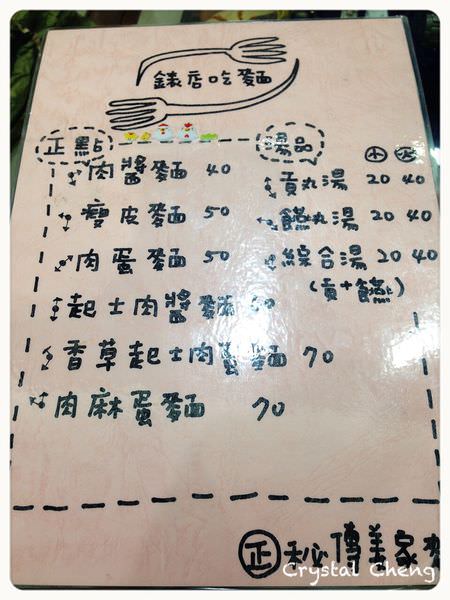 錶店吃麵
正點
肉醬麵 40
瘦皮麵 50
肉蛋麵 50
起士肉醬麵 60
香草起士肉醬麵 70
肉麻蛋麵 70
湯品
小 大
貢丸湯 20 40
餛丸湯 20 40
綜合湯 20 40
(貢+餛)
正 秘傳美家
Crystal Cheng